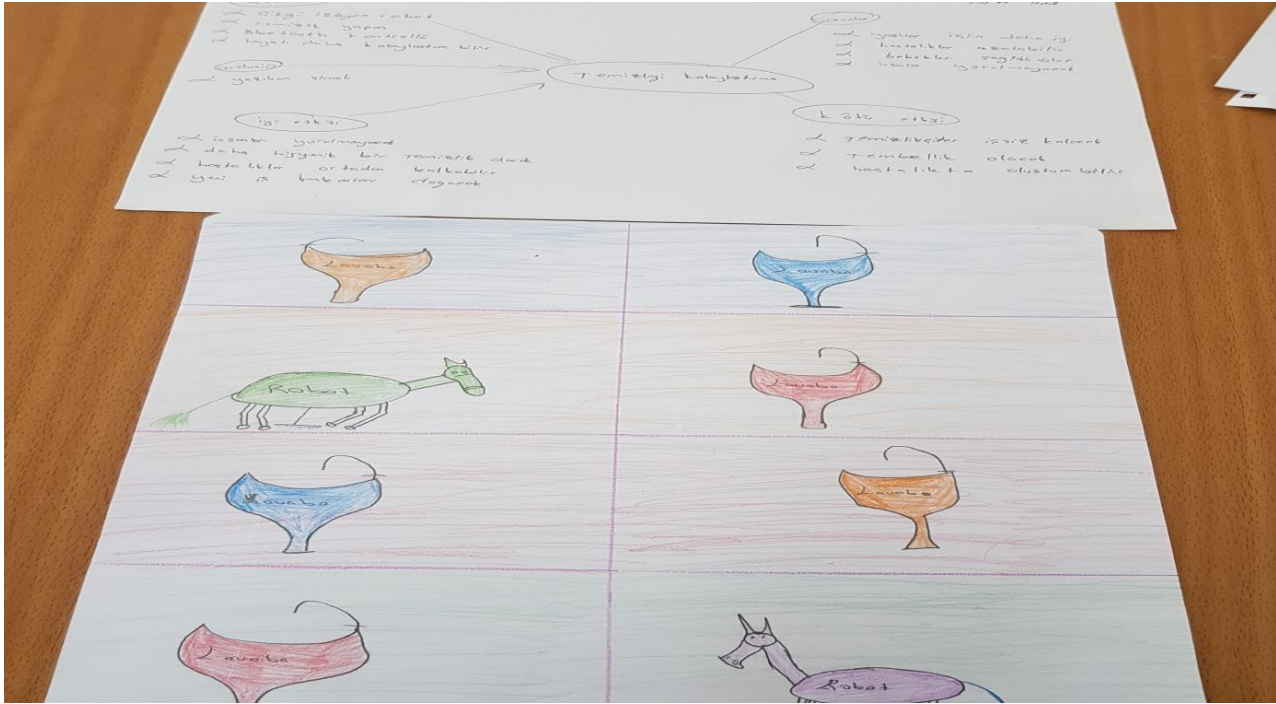 Çizgi izleyen robot
Temizlik yapan
Bluetooth kontrollü
hayatı daha kolaylaştıra bilir
yazılım
iyi etkisi
insanlar yorulmayacak
daha hijyenik bir temizlik olacak
hastalıklar ortadan kalkabilir
yeni iş
Temizliği kolaylaştırma
yaşlılar için daha iyi
hastalıklar azalabilir
bebekler sağlıklı olur
insanlar yorulmayacak
kötü etkisi
Temizlikçiler işsiz kalacak
Tembellik olacak
hastalıkta oluştura bilir
Lavabo
Lavabo
Robot
Lavabo
Lavabo
Lavabo
Lavabo
Robot